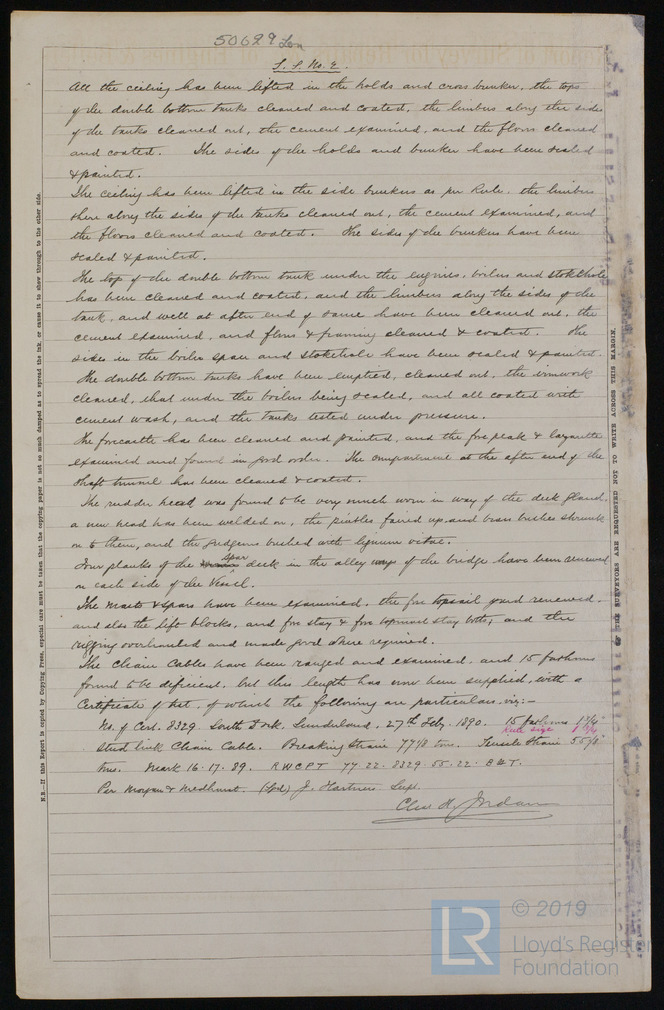 50629 Lon
S. S. No. 2.
All the ceiling has been lifted in the holds and cross bunker, the tops
of the double bottom tanks cleaned and coated, the limbers along the sides
of the tanks cleaned out, the cement examined, and the floors cleaned
and coated. The sides of the holds and bunker have been scaled
& painted.
The ceiling has been lifted in the side bunkers as per Rule, the limbers
there along the sides of the tanks cleaned out, the cement examined, and
the floors cleaned and coated. The sides of the bunkers have been
scaled & painted.
The top of the double bottom tank under the engines, boilers and stokehole
has been cleaned and coated, and the limbers along the sides of the
tank, and well at after end of same have been cleaned out, the
cement examined, and floors & framing cleaned & coated. The
sides in the boiler space and stokehole have been scaled & painted.
The double bottom tanks have been emptied, cleaned out, the ironwork
cleaned, that under the boilers being scaled, and all coated with
cement wash, and the tanks tested under pressure.
The forecastle has been cleaned and painted, and the fore peak & lazarette
examined and found in good order. The compartment at the after end of the
shaft tunnel has been cleaned & coated.
The rudder head was found to be very much worn in way of the deck gland,
a new head has been welded on, the pintles faired up and brass bushes shrunk
on to them, and the gudgeons bushed with lignum vitae.
Four planks of the spar deck in the alley ways of the bridge have been renewed
on each side of the Vessel.
The masts & spars have been examined, the fore topsail yard renewed,
and also the left blocks, and fore stay & fore topmast stay bolts, and the
rigging overhauled and made good where required.
The Chain Cables have been ranged and examined, and 15 fathoms
found to be deficient, but this length has now been supplied, with a
Certificate of test, of which the following are particulars, viz:-
No. of Cert. 8329. South Dock, Sunderland, 27th Feby. 1890. 15 fathoms
Rule size
Stud link Chain Cable. Breaking Strain 77 1/8 tons. Tensile Strain 55 1/8
tons. Mark 16.17.89. RWCPT 77.22.8329.55.22.
Per Morgan & Medhurst. (Sgd) J. Hartness Supt.
Chas. H. Jordan
N.B.—If this Report is copied by Copying Press, especial care must be taken that the copying paper is not so much damped as to spread the ink, or cause it to show through to the other side.
THE SURVEYORS ARE REQUESTED NOT TO WRITE ACROSS THIS MARGIN.
LR
© 2019
Lloyd's Register
Foundation